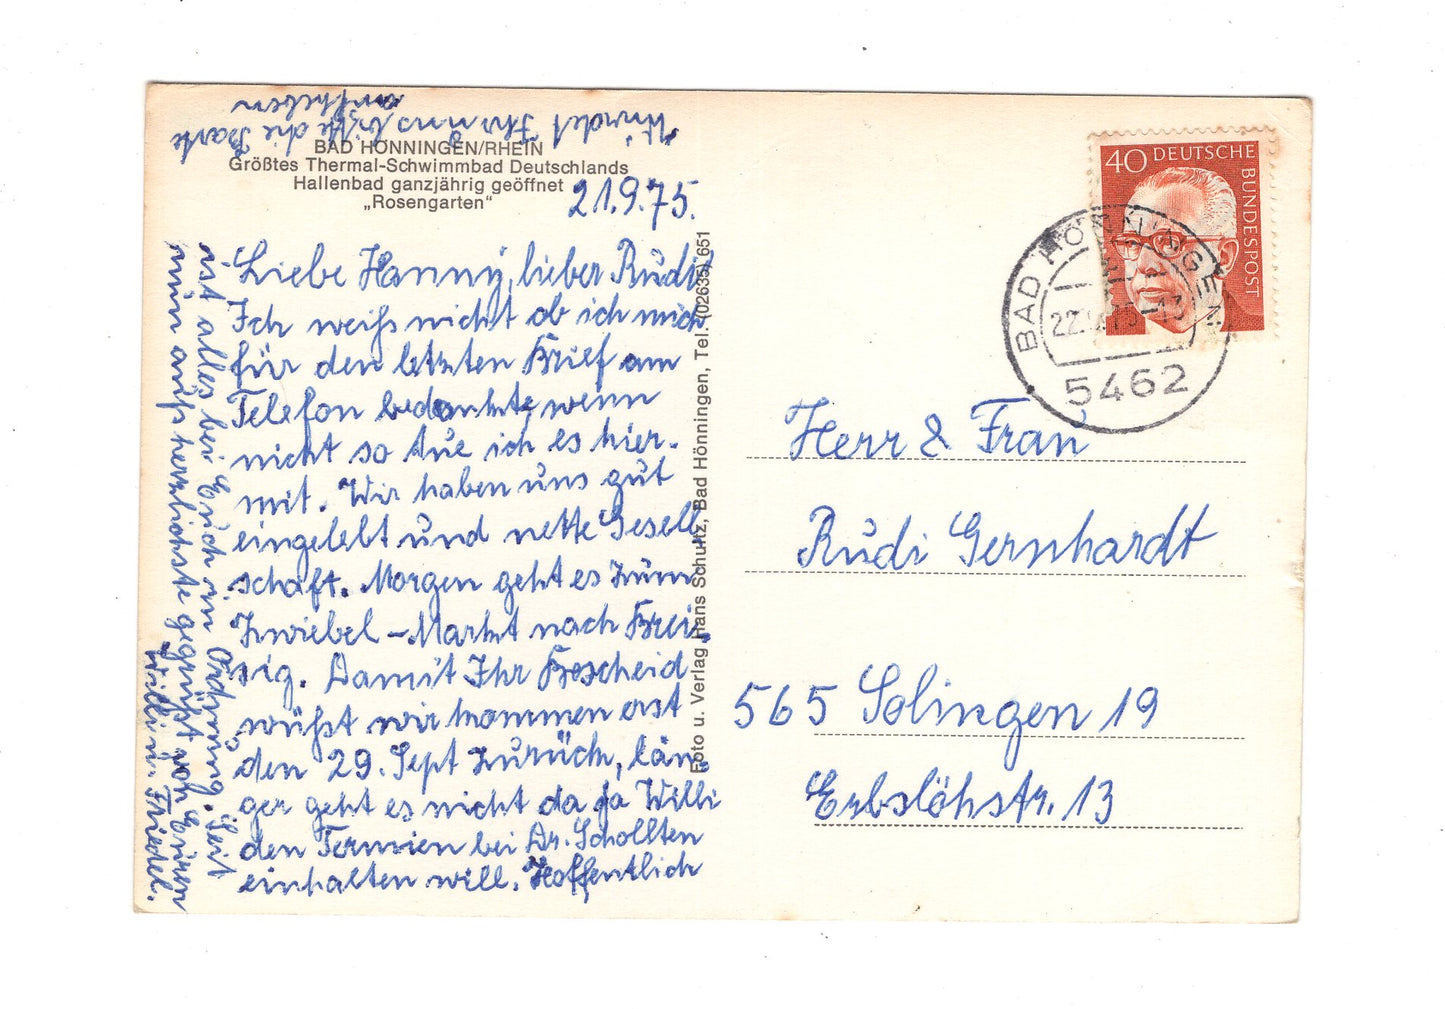 BAD HÖNNINGEN/RHEIN
Größtes Thermal-Schwimmbad Deutschlands
Hallenbad ganzjährig geöffnet
„Rosengarten"
21.9.75.
Liebe Hanny, lieber Rudi!
Ich weiß nicht ob ich mich
für den letzten Brief am
Telefon bedankte, wenn
nicht so tue ich es hier-
mit. Wir haben uns gut
eingelebt und nette Gesell
schaft. Morgen geht es zum
Zwiebel-Markt nach Brei-
sig. Damit Ihr Bescheid
wüßt wir kommen erst
den 29. Sept zurück, län-
ger geht es nicht da ja Willi
den Termien bei Dr. Schollten
einhalten will. Hoffentlich
ist alles bei Euch in Ordnung. Seit
nun aufs herzlichste gegrüßt von Euren
Willi u. Friedel.
Würdet Ihr uns bitte die Karte
aufheben
Foto u. Verlag Hans Schultz, Bad Hönningen, Tel. (02635) 651
40 DEUTSCHE
BUNDESPOST
BAD HÖNNINGEN
22.9.75-13
5462
Herr & Frau
Rudi Gernhardt
565 Solingen 19
Erbslöhstr. 13